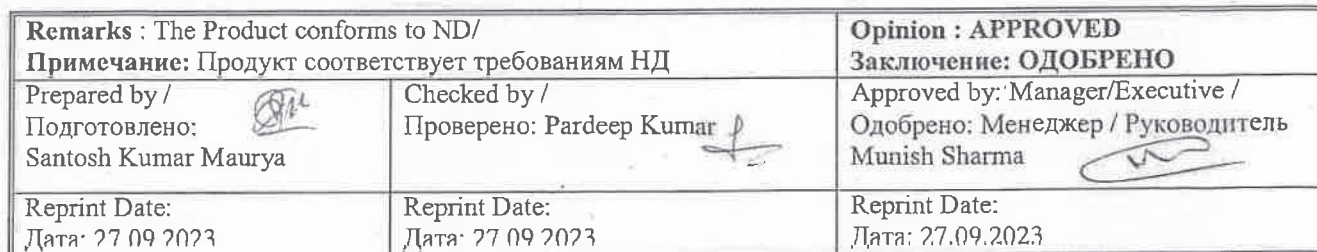 Remarks : The Product conforms to ND/
Примечание: Продукт соответствует требованиям НД
Opinion : APPROVED
Заключение: ОДОБРЕНО
Prepared by /
Подготовлено:
Santosh Kumar Maurya
Checked by /
Проверено: Pardeep Kumar
Approved by: Manager/Executive /
Одобрено: Менеджер / Руководитель
Munish Sharma
Reprint Date:
Дата: 27.09.2023
Reprint Date:
Дата: 27.09.2023
Reprint Date:
Дата: 27.09.2023